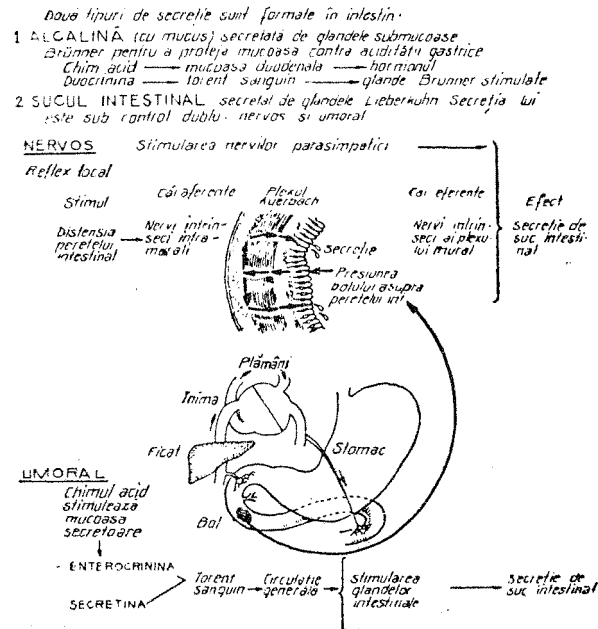 Două tipuri de secreție sunt formate în intestin.
1 ALCALINĂ (cu mucus) secretată de glandele submucoase
Brünner pentru a proteja mucoasa contra acidității gastrice
Chim acid → mucoasa duodenală → hormonul
Duocrinina → torent sanguin → glande Brunner stimulate
2 SUCUL INTESTINAL secretat de glandele Lieberkuhn Secreția lui
este sub control dublu: nervos si umoral
NERVOS Stimularea nervilor parasimpatici
Reflex local
Stimul
Căi aferente
Plexul
Auerbach
Căi eferente
Efect
Distensia
peretelui
intestinal
Nervi intrin-
seci intra-
murali
Secreție
Presiunea
bolului asupra
peretelui int
Nervi intrin-
seci ai plexu-
lui mural
Secretie de
suc intesti-
nal
Plămâni
Inima
Ficat
Stomac
Bol
UMORAL
Chimul acid
stimulează
mucoasa
secretoare
- ENTEROCRININA
SECRETINA
Torent
sanguin
Circulație
generala
Stimularea
glandelor
intestinale
Secreție de
suc intestinal